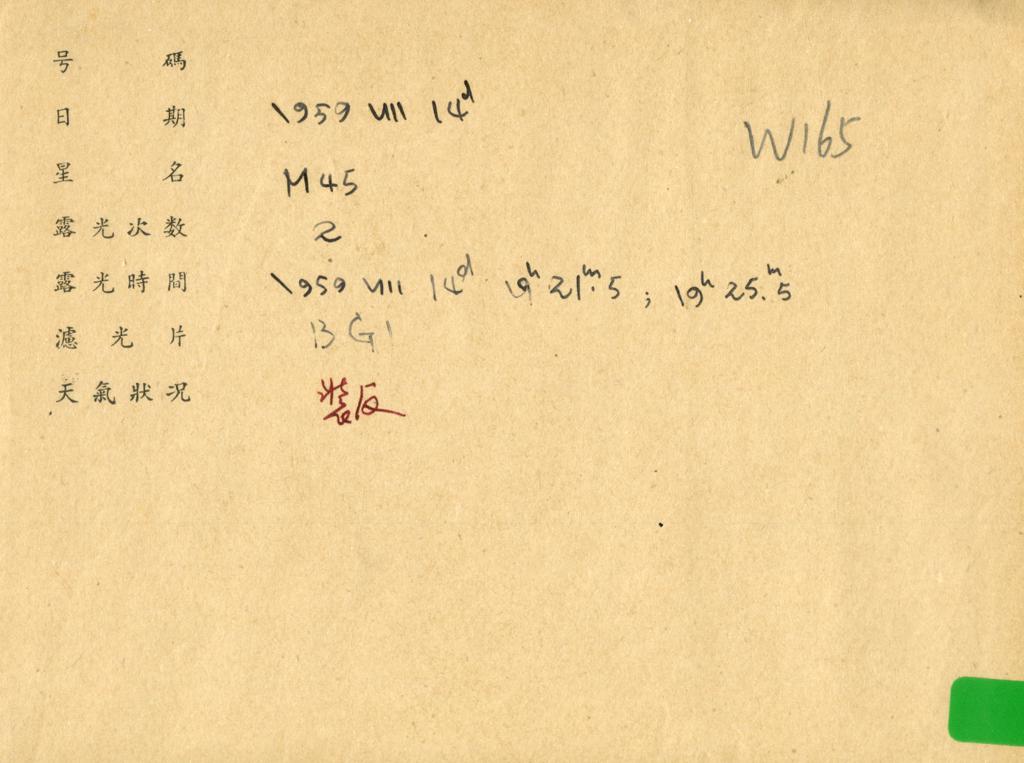 号碼
日期 1959 VIII 14d
W165
星名 M45
露光次数 2
露光時間 1959 VIII 14d 19h 21m.5 ; 19h 25m.5
濾光片 BG1
天氣狀況 裝反